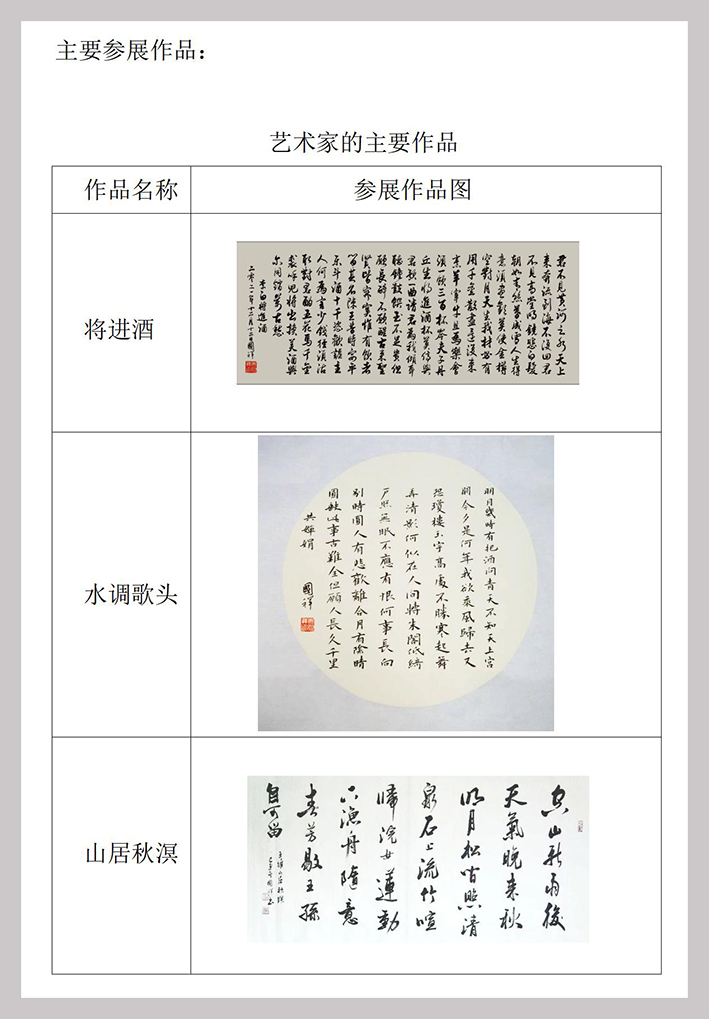 主要参展作品：
艺术家的主要作品
作品名称
参展作品图
将进酒
君不見黃河之水天上
來奔流到海不復回君
不見高堂明鏡悲白髮
朝如青絲暮成雪人生得
意須盡歡莫使金樽
空對月天生我材必有
用千金散盡還復來
烹羊宰牛且為樂會
須一飲三百杯岑夫子丹
丘生將進酒杯莫停與
君歌一曲請君為我傾耳
聽鐘鼓饌玉不足貴但
願長醉不願醒古來聖
賢皆寂寞惟有飲者
留其名陳王昔時宴平
樂斗酒十千恣歡謔主
人何為言少錢徑須沽
取對君酌五花馬千金
裘呼兒將出換美酒與
爾同銷萬古愁
李白將進酒
二零二一年十二月十二日國祥
水调歌头
明月幾時有把酒問青天不知天上宮
闕今夕是何年我欲乘風歸去又
恐瓊樓玉宇高處不勝寒起舞
弄清影何似在人間轉朱閣低綺
戶照無眠不應有恨何事長向
別時圓人有悲歡離合月有陰晴
圓缺此事古難全但願人長久千里
共嬋娟
國祥
山居秋溟
空山新雨後
天氣晚來秋
明月松間照清
泉石上流竹喧
歸浣女蓮動
下漁舟隨意
春芳歇王孫
自可留
王維山居秋暝
國祥書